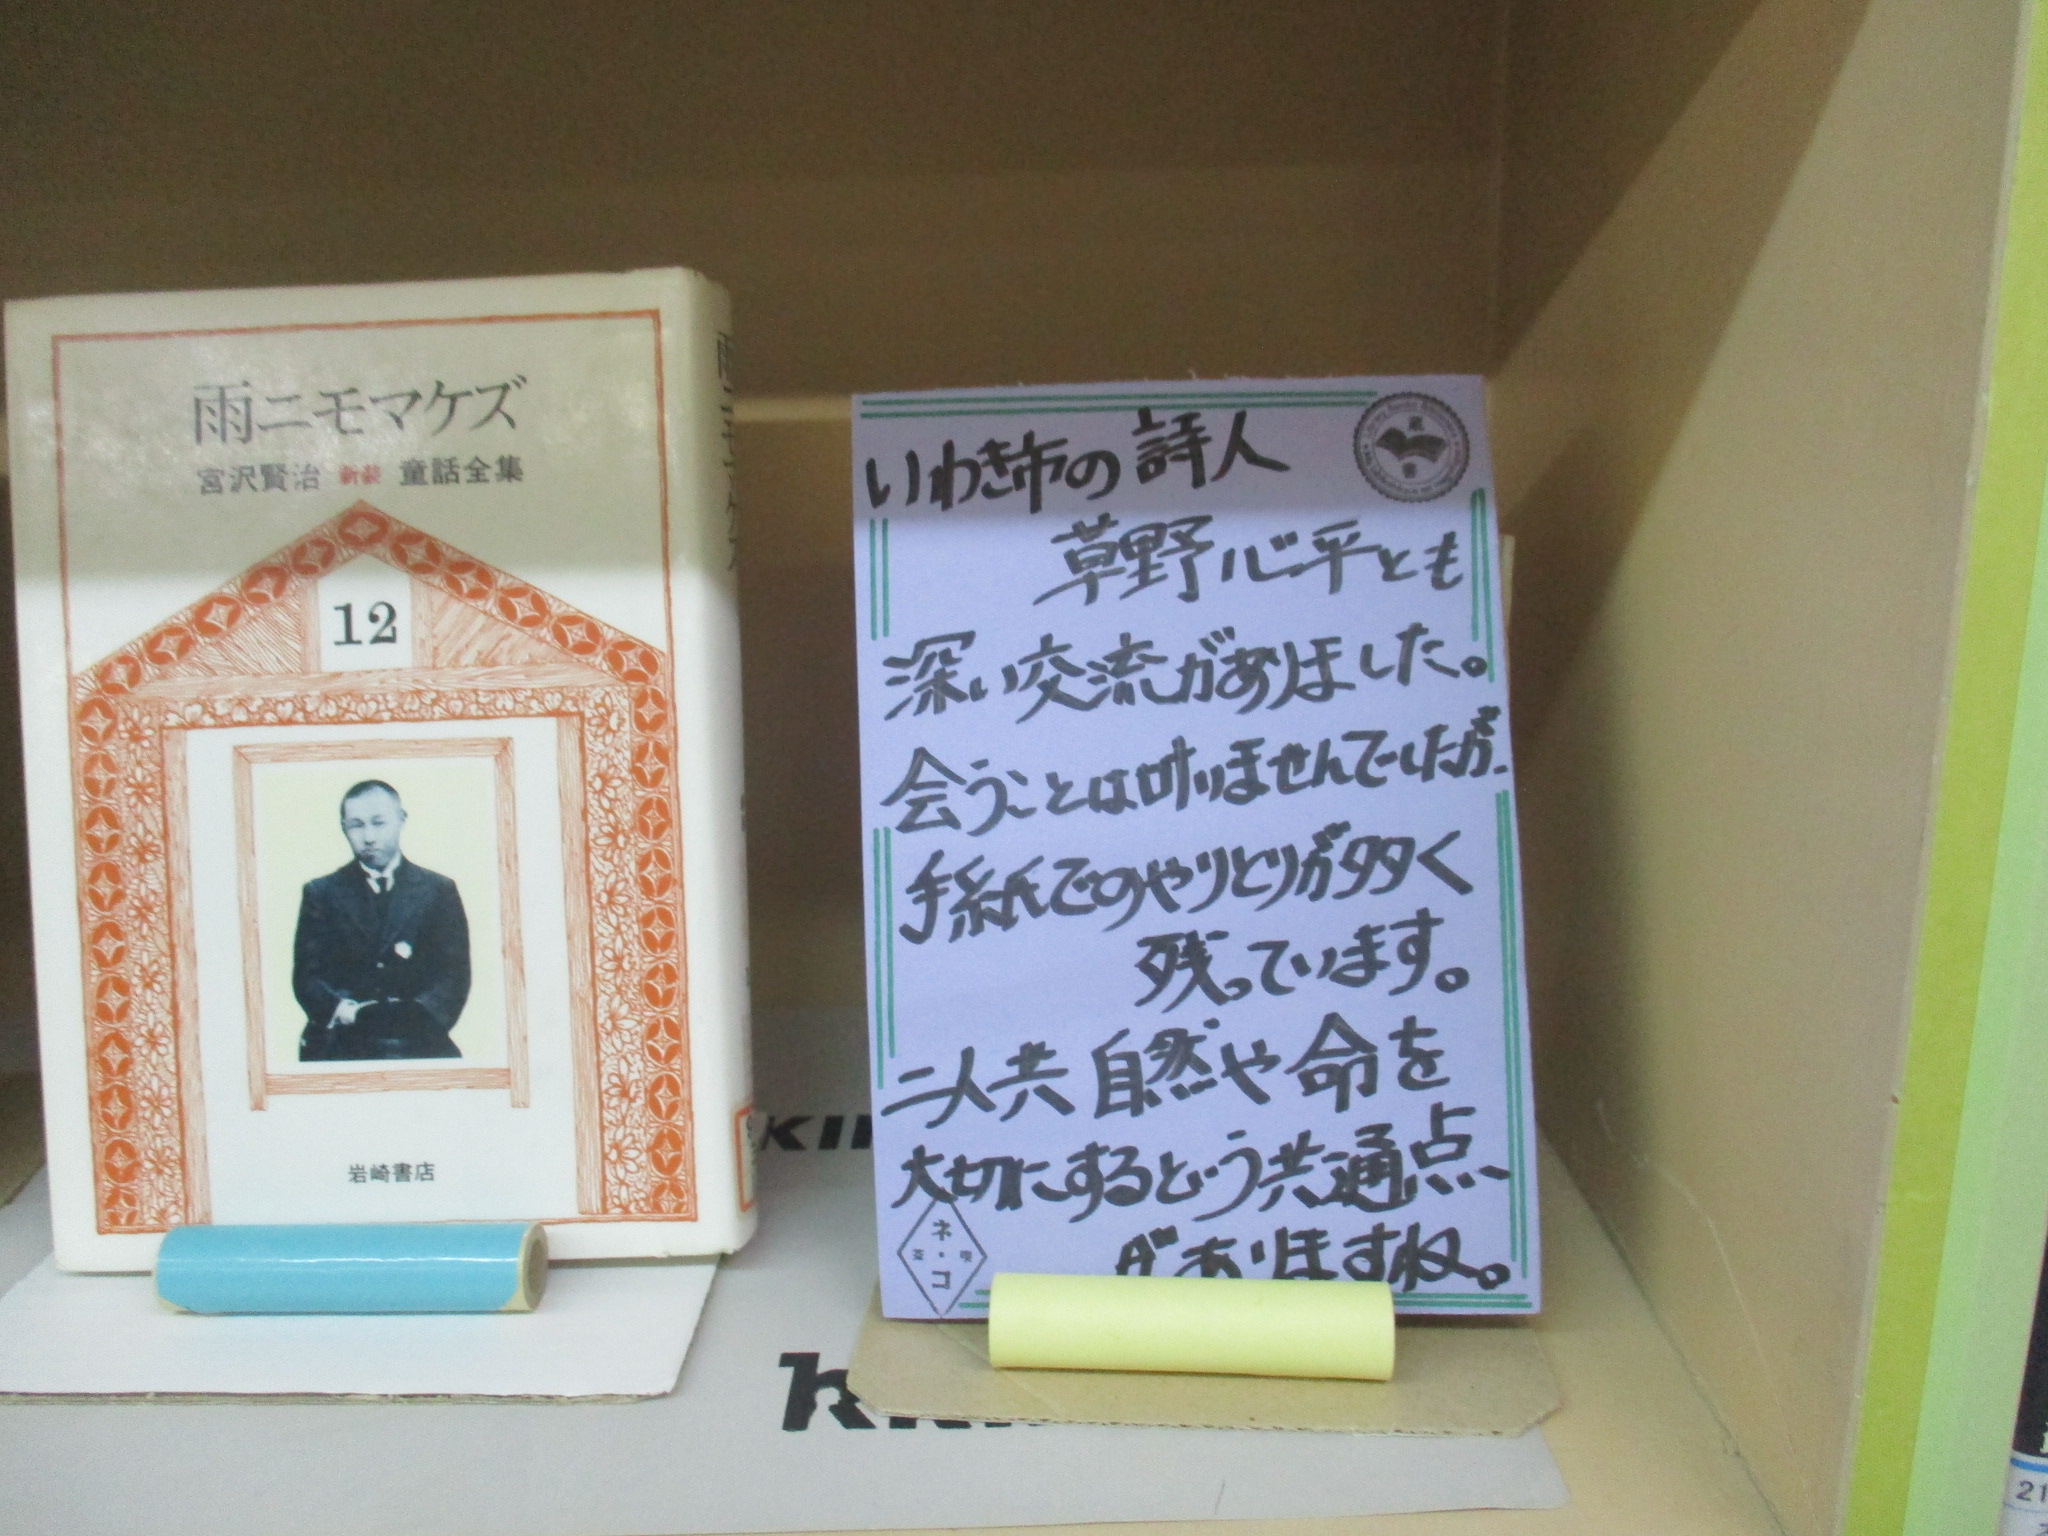 雨ニモマケズ
宮沢賢治 新装 童話全集
12
岩崎書店
いわき市の詩人
草野心平とも
深い交流がありました。
会うことは叶いませんでしたが、
手紙でのやりとりが多く
残っています。
二人共自然や命を
大切にするという共通点、
がありますね。
蔵書
ネ・コ
茶 喫
21